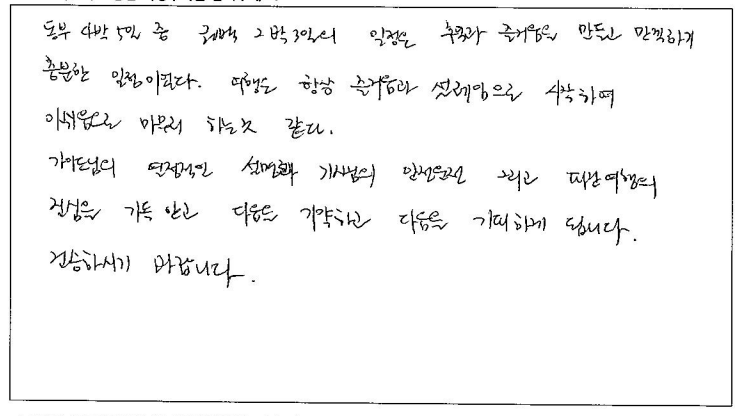 동부 4박 5일 중 퀘백 2박 3일의 일정은 추억과 즐거움을 만들고 만끽하기
충분한 일정이었다. 여행은 항상 즐거움과 설레임으로 시작하여
아쉬움으로 마무리 하는 것 같다.
가이드님의 열정적인 설명과 기사님의 안전운전 그리고 여행의
진심을 가득 안고 다음을 기약하고 다음을 기대하게 됩니다.
건승하시기 바랍니다.